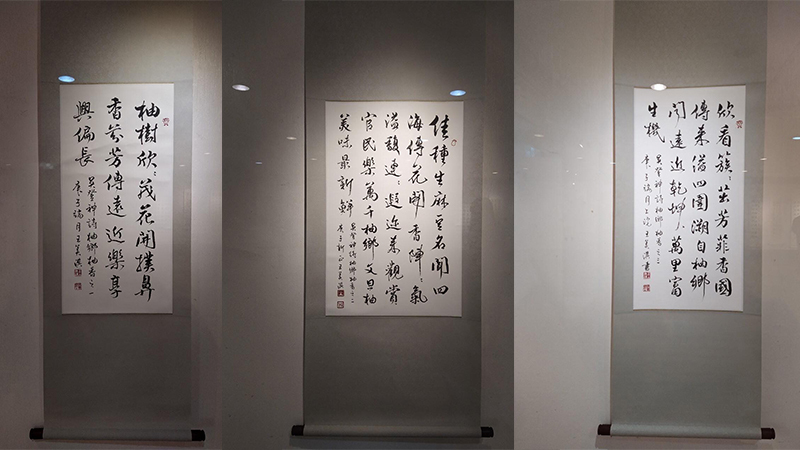 柚樹欣〻茂花開撲鼻
香芬芳傳遠近樂享
興偏長
吳登神詩柚鄉柚香之一
庚子端月王美
佳種生麻豆名聞四
海傳花開香陣〻氣
溢馥連〻遐近來觀賞
官民樂萬千柚鄉文旦柚
美味最新鮮
吳登神詩柚鄉柚香之二
庚子新正王美
欣看簇〻茁芳菲香國
傳來溢四圍溯自柚鄉
聞遠近乾坤萬里富
生機
吳登神詩柚鄉柚香之三
庚子端月上浣王美書